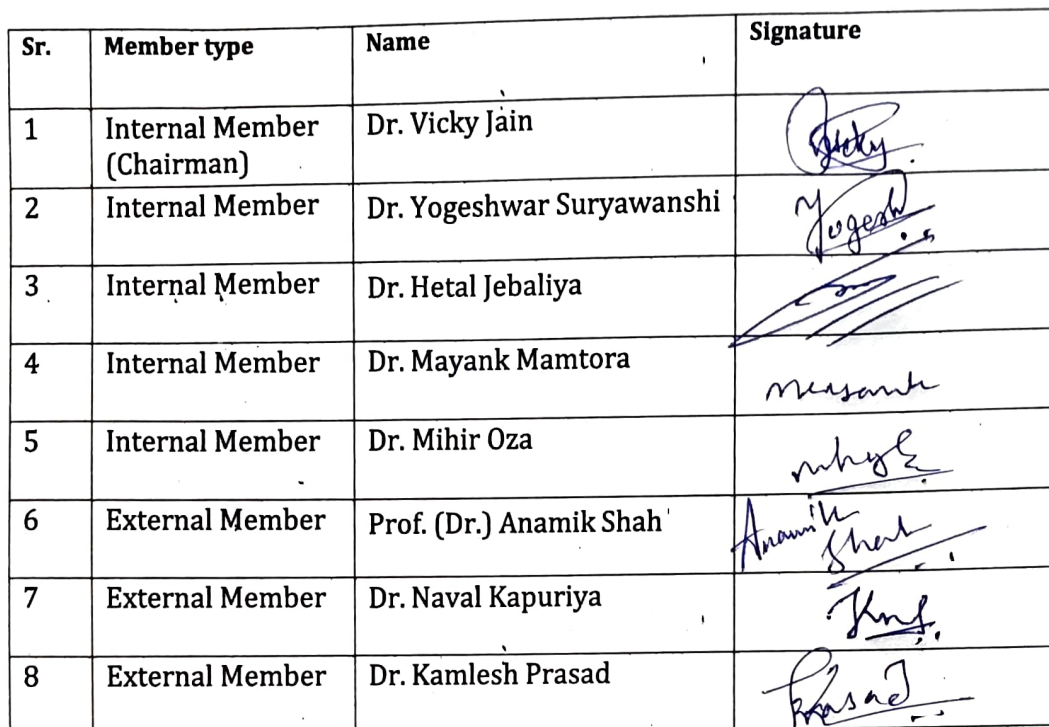 Sr. Member type Name Signature
1 Internal Member (Chairman) Dr. Vicky Jain Vicky
2 Internal Member Dr. Yogeshwar Suryawanshi Yogesh
3 Internal Member Dr. Hetal Jebaliya
4 Internal Member Dr. Mayank Mamtora
5 Internal Member Dr. Mihir Oza
6 External Member Prof. (Dr.) Anamik Shah Anamik Shah
7 External Member Dr. Naval Kapuriya
8 External Member Dr. Kamlesh Prasad Prasad